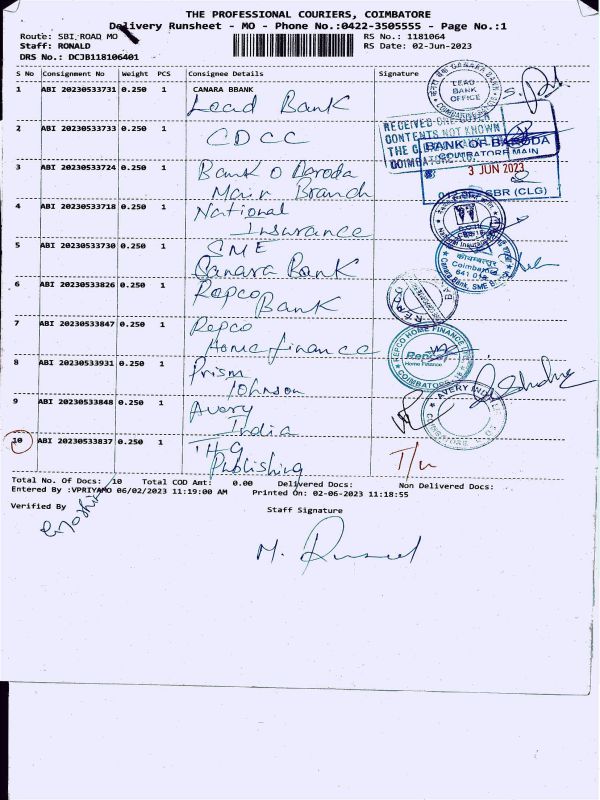 THE PROFESSIONAL COURIERS, COIMBATORE
Delivery Runsheet - MO - Phone No.:0422-3505555 - Page No.:1
Route: SBI ROAD MO RS No.: 1181064
Staff: RONALD RS Date: 02-Jun-2023
DRS No.: DCJB118106401
S No Consignment No Weight PCS Consignee Details Signature
1 ABI 20230533731 0.250 1 CANARA BBANK
Lead Bank
LEAD BANK OFFICE
2 ABI 20230533733 0.250 1 CDCC
RECEIVED ONE COVER
CONTENTS NOT KNOWN
3 ABI 20230533724 0.250 1 Bank O Baroda
Main Branch
BANK OF BARODA
COIMBATORE MAIN
3 JUN 2023
SBR (CLG)
4 ABI 20230533718 0.250 1 National
Insurance
5 ABI 20230533730 0.250 1 SME
Canara Bank
कोयम्बत्तूर
Coimbatore
641 018
Canara Bank, SME
6 ABI 20230533826 0.250 1 Repco
Bank
REPCO BANK
7 ABI 20230533847 0.250 1 Repco
Home Finance
REPCO HOME FINANCE
Repco
Home Finance
COIMBATORE
8 ABI 20230533931 0.250 1 Prism
Johnson
9 ABI 20230533848 0.250 1 Avery
India
AVERY INDIA
COIMBATORE
10 ABI 20230533837 0.250 1 THG
Publishing
Total No. Of Docs: 10 Total COD Amt: 0.00 Delivered Docs: Non Delivered Docs:
Entered By :VPRIYAMO 06/02/2023 11:19:00 AM Printed On: 02-06-2023 11:18:55
Verified By Staff Signature